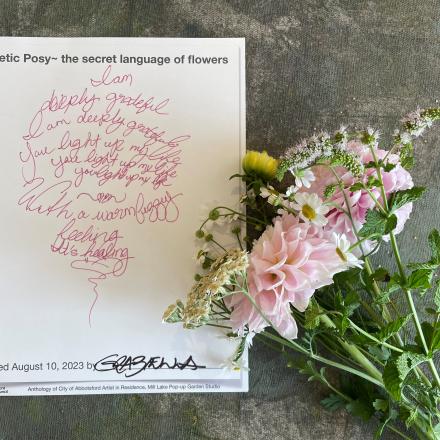 etic Posy~ the secret language of flowers
I am
deeply grateful
I am deeply grateful
You light up my life
You light up my life
You light up my life
With a warm fuzzy
feeling
It's healing
ed August 10, 2023 by
Anthology of City of Abbotsford Artist in Residence, Mill Lake Pop-up Garden Studio